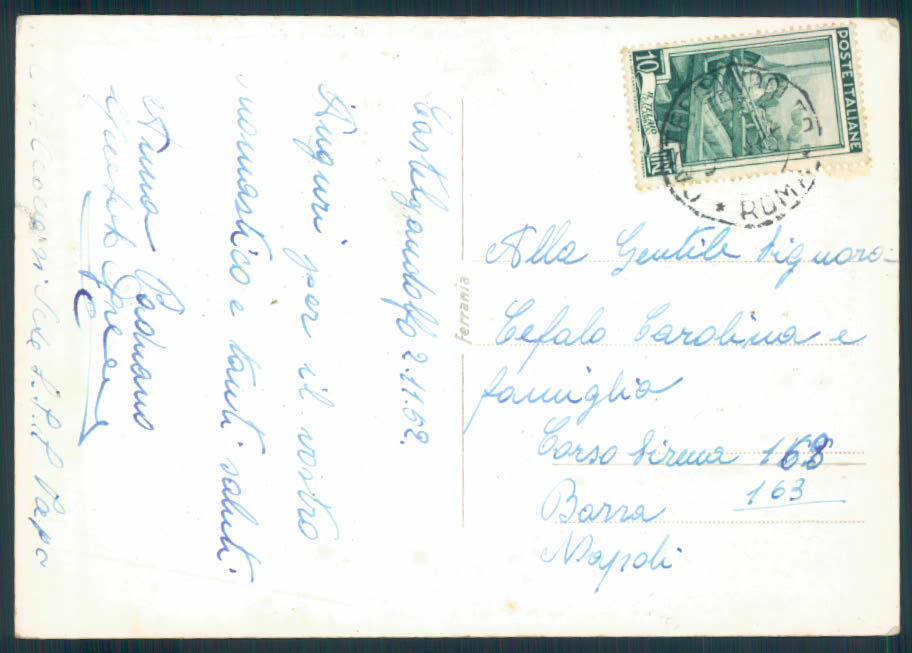 Castelgandolfo 2.11.52.
Auguri per il vostro
onomastico e tanti saluti.
Anna Padnano
S.S. il Papa
POSTE ITALIANE
10
IL TELAIO
ROMA
Alla Gentile Signora
Cefalo Carolina e
famiglia
Corso Sirena 168
163
Barra
Napoli
Ferrania